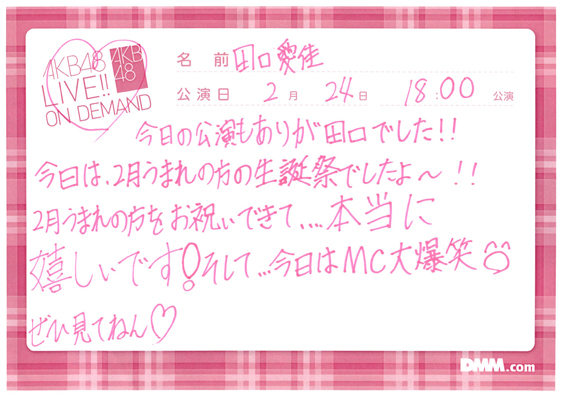 AKB48
LIVE!!
ON DEMAND
AKB
48
名 前 田口愛佳
公演日 2月 24日 18:00 公演
今日の公演もありが田口でした!!
今日は、2月うまれの方の生誕祭でしたよ〜!!
2月うまれの方をお祝いできて、...本当に
嬉しいです!そして...今日はMC大爆笑
ぜひ見てねん♡
DMM.com